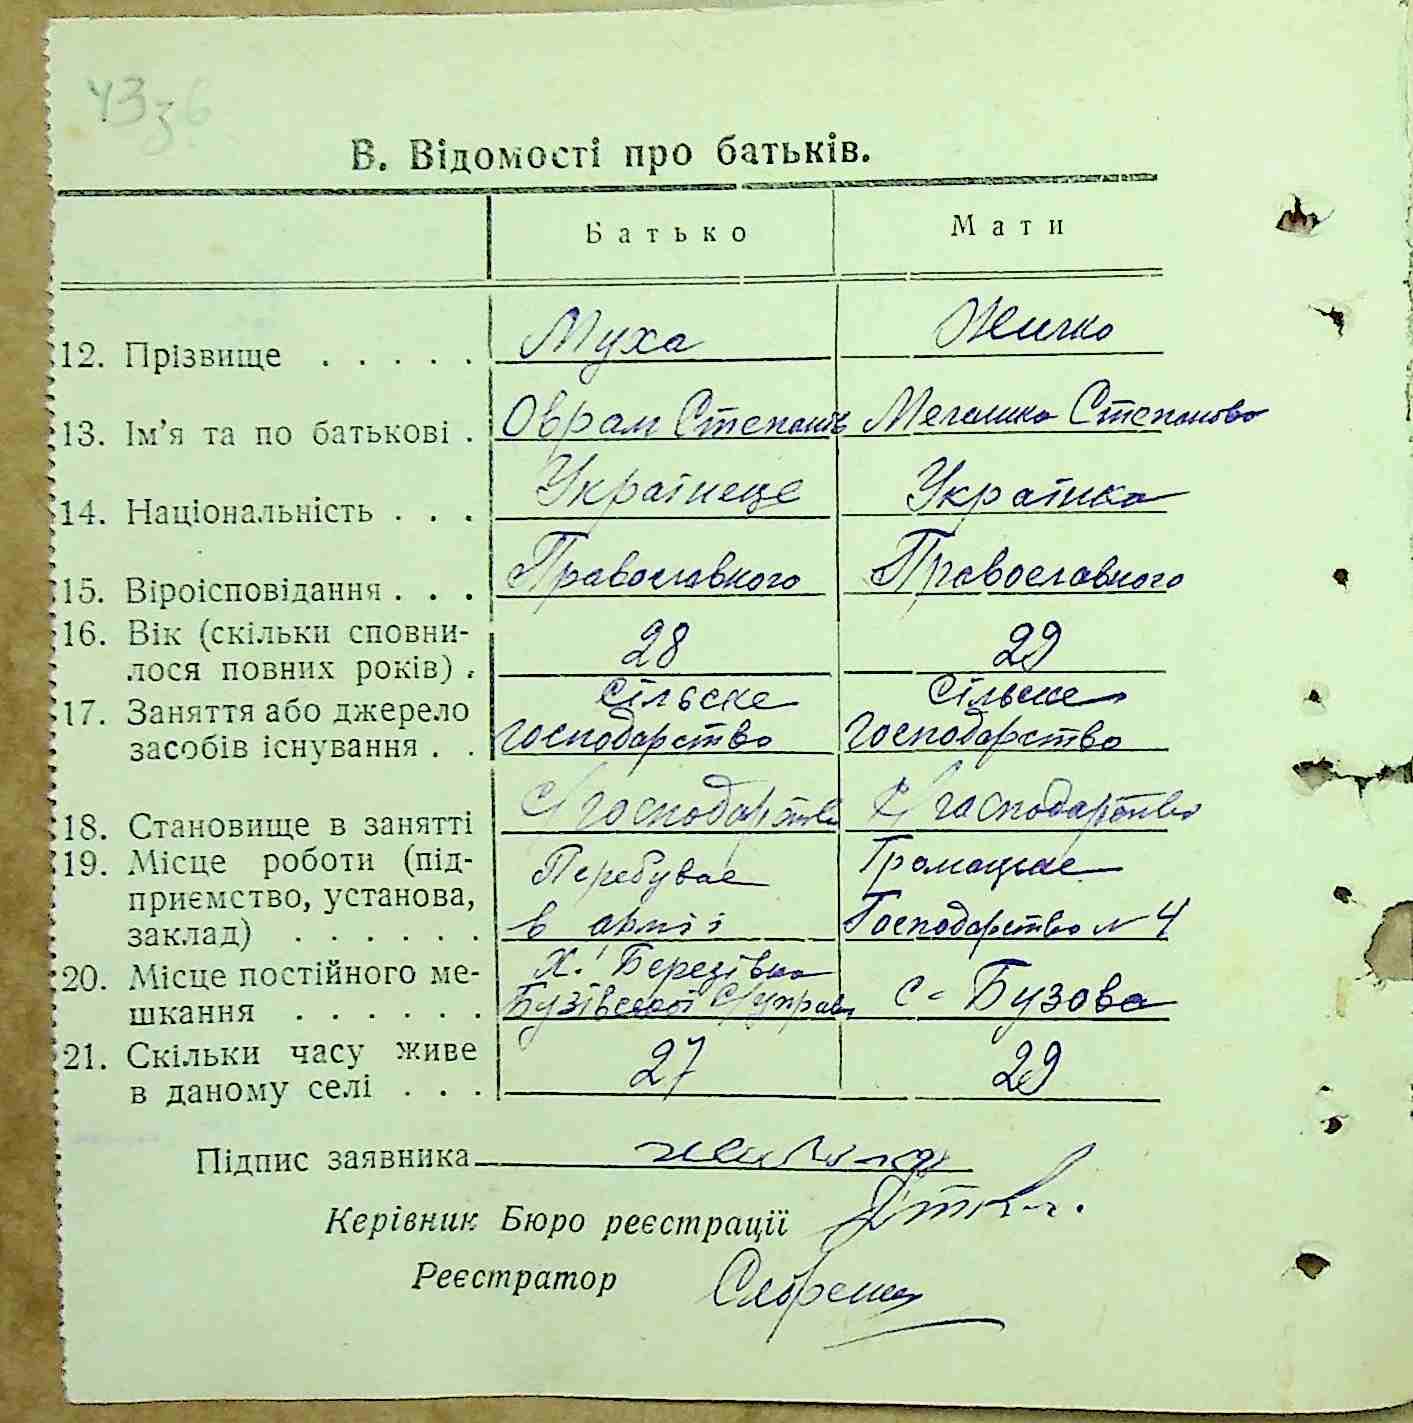 43зб
В. Відомості про батьків.
Батько Мати
12. Прізвище . . . . . Муха Жичко
13. Ім’я та по батькові . Оврам Степанів Мелашка Степанова
14. Національність . . . Українеце Українка
15. Віроісповідання . . . Православного Православного
16. Вік (скільки сповни- 28 29
лося повних років) .
17. Заняття або джерело Сільске Сільске
засобів існування . . господарство господарство
18. Становище в занятті с/господарство с/господарство
19. Місце роботи (під- Перебувае Громацьке
приємство, установа,
заклад) . . . . . . в армії Господарство № 4
20. Місце постійного ме- Х. Березівка
шкання . . . . . . Бузівської с/управи с. Бузова
21. Скільки часу живе 27 29
в даному селі . . .
Підпис заявника
Керівник Бюро реєстрації
Реєстратор